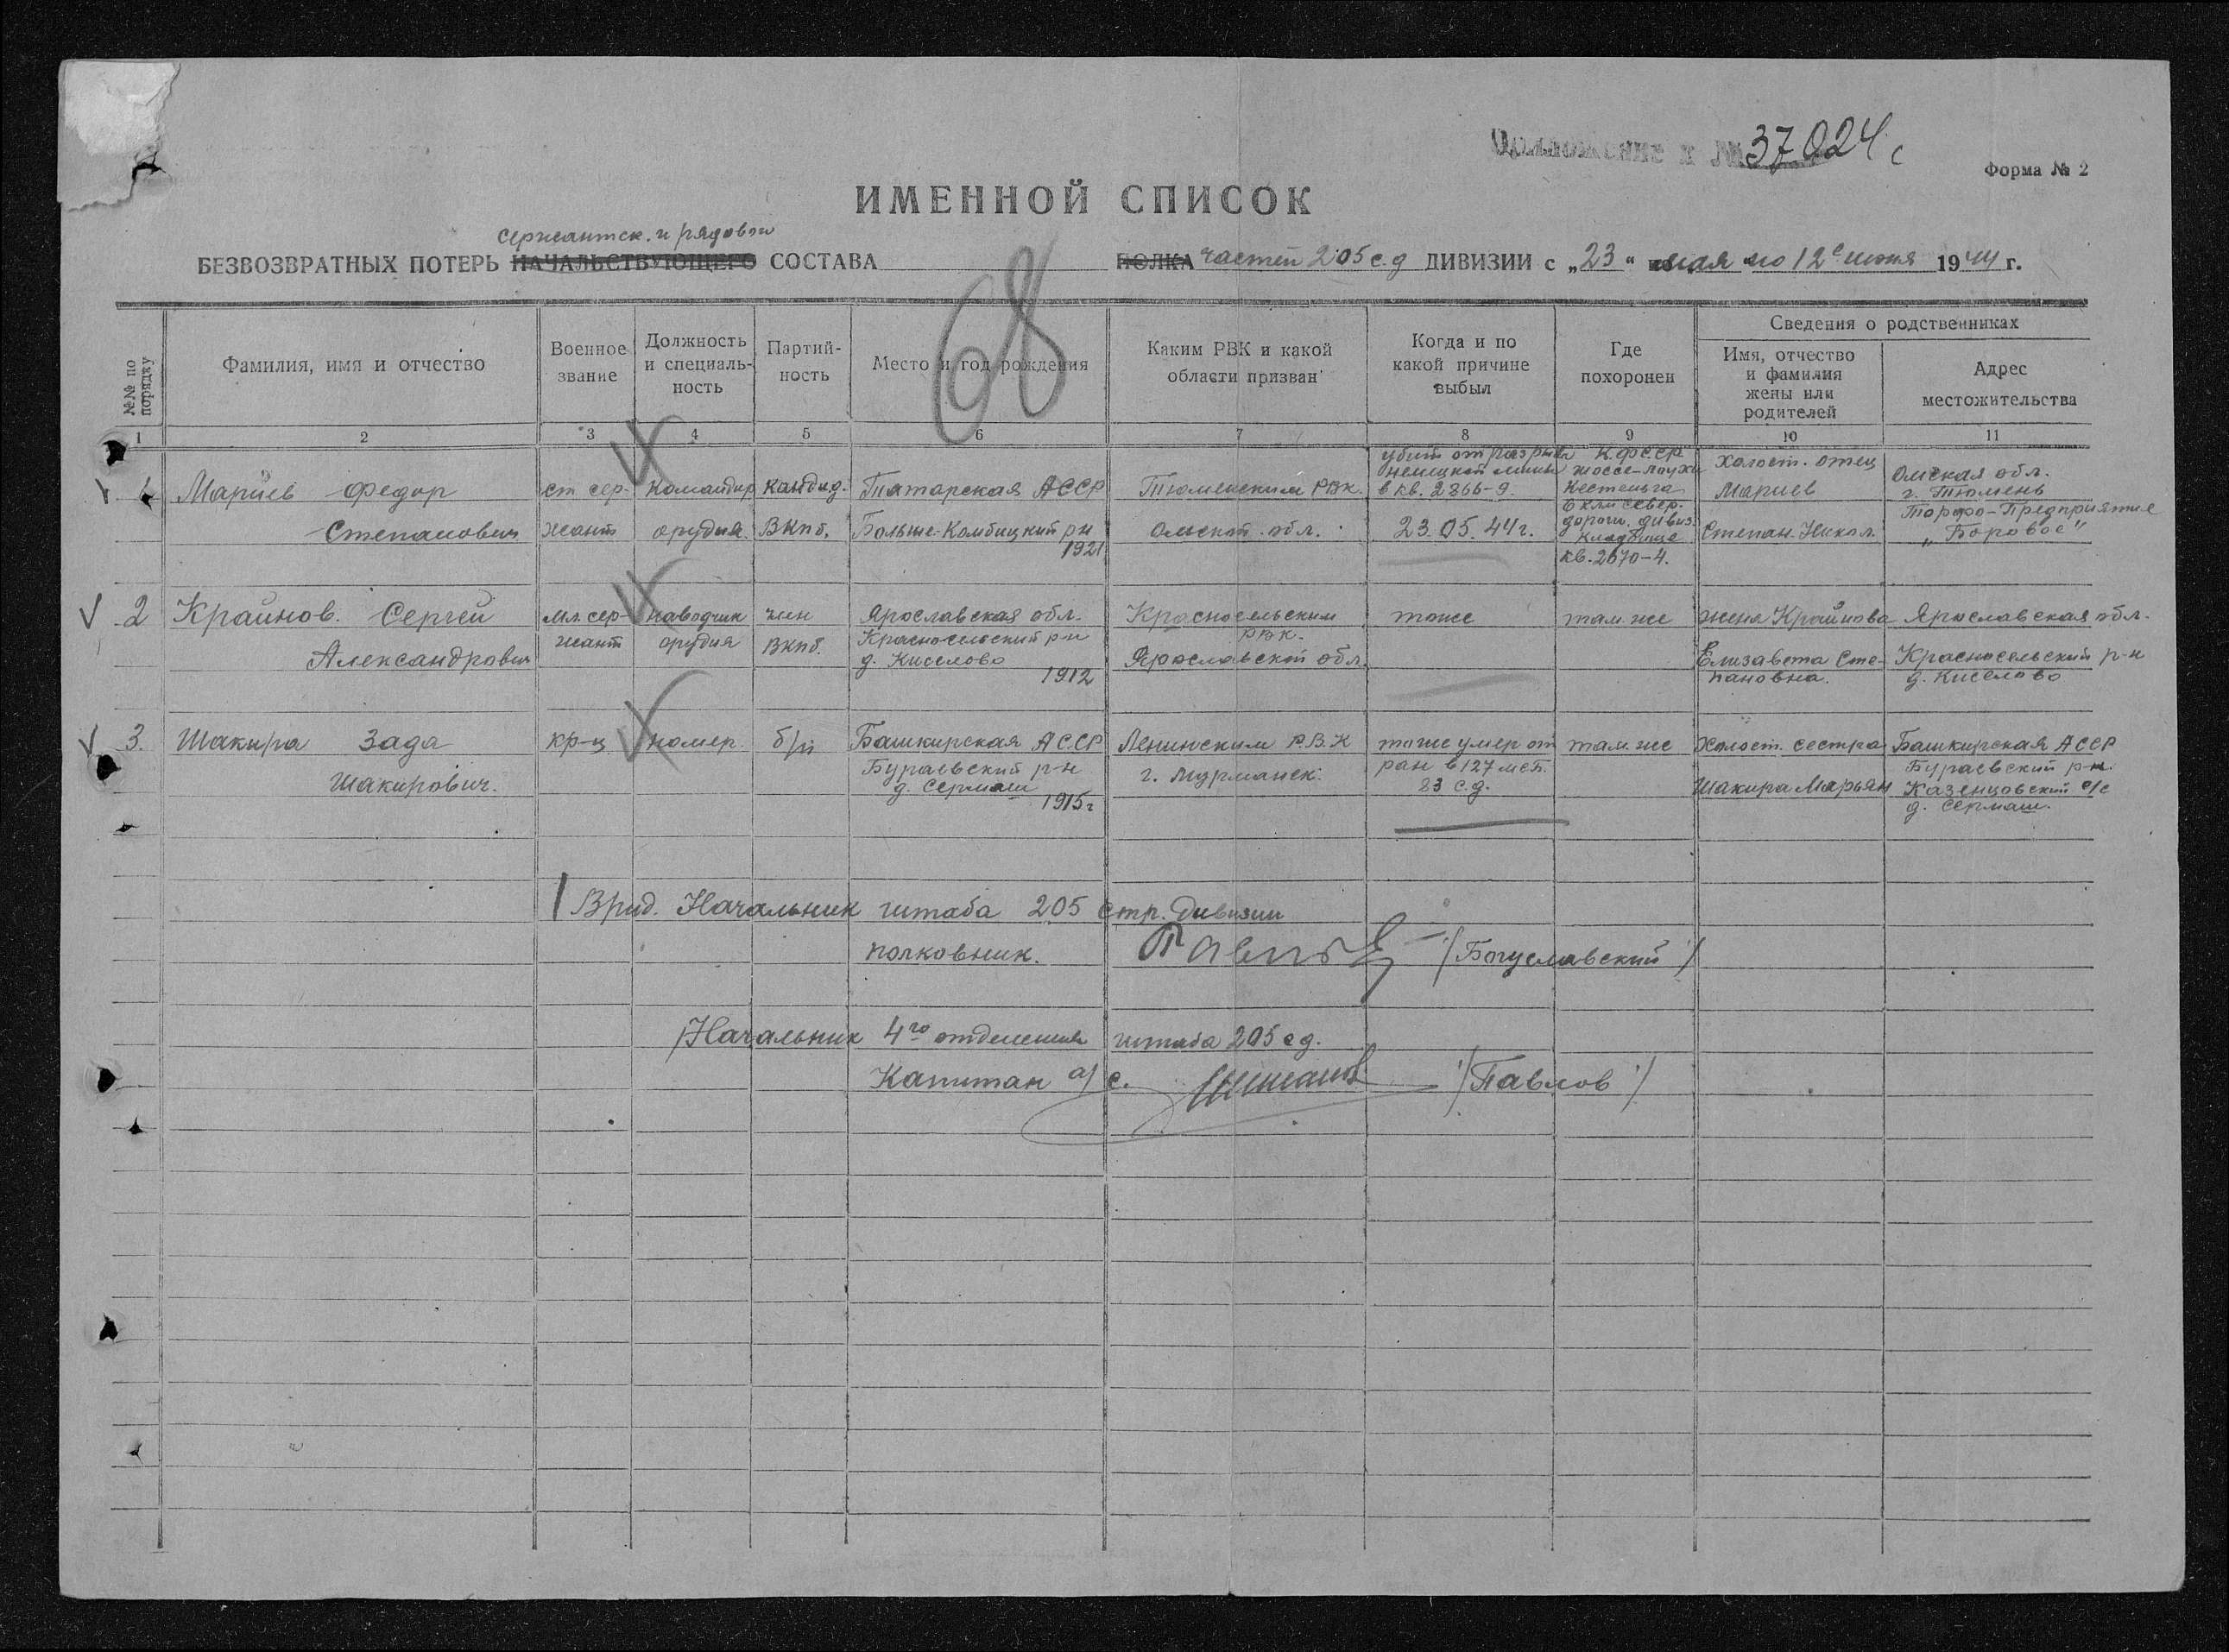 Приложение к № 37024с
Форма № 2
ИМЕННОЙ СПИСОК
сержантск. и рядовой
БЕЗВОЗВРАТНЫХ ПОТЕРЬ НАЧАЛЬСТВУЮЩЕГО СОСТАВА ПОЛКА частей 205 с.д ДИВИЗИИ с „23“ мая по 12е июня 1944 г.
68
№№ по порядку
Фамилия, имя и отчество
Военное звание
Должность и специаль-ность
Партий-ность
Место и год рождения
Каким РВК и какой области призван
Когда и по какой причине выбыл
Где похоронен
Сведения о родственниках
Имя, отчество и фамилия жены или родителей
Адрес местожительства
1 2 3 4 5 6 7 8 9 10 11
1
Мариев Федор
Степанович
ст сер-
жант
командир
орудия
кандид.
ВКПб.
Татарская АССР
Больше-Камбицкий рн
1921
Тюменским РВК
Омской обл.
убит от разрыва
немецкой мины
в кв. 2866-9.
23.05.44г.
К.ФССР
шоссе-Лоухи
Кестеньга
6 км север.
дороги. дивиз.
кладбище
кв.2670-4.
Холост. отец
Мариев
Степан. Никол.
Омская обл.
г. Тюмень
Торфо-Предприятие
„Боровое"
2
Крайнов. Сергей
Александрович
мл. сер-
жант
наводчик
орудия
член
ВКПб.
Ярославская обл.
Красносельский р-н
д. Киселово
1912
Красносельским
РВК.
Ярославской обл.
тоже
там же
жена Крайнова
Елизавета Сте-
пановна.
Ярославская обл.
Красносельский р-н
д. Киселово
3.
Шакира Зада
Шакирович.
кр-ц
номер.
б/п
Башкирская АССР
Бураевский р-н
д. Сермаш
1915г
Ленинским Р.В.К
г. Мурманск.
тоже умер от
ран в 127 мсб.
83 с.д.
там же
Холост. сестра
Шакира Марьян
Башкирская АССР
Бураевский р-н.
Казенцовский с/с
д. Сермаш.
Врид. Начальник штаба 205 стр. Дивизии
полковник. /Богуславский/
Начальник 4го отделения штаба 205 сд.
Капитан а/с. /Павлов/